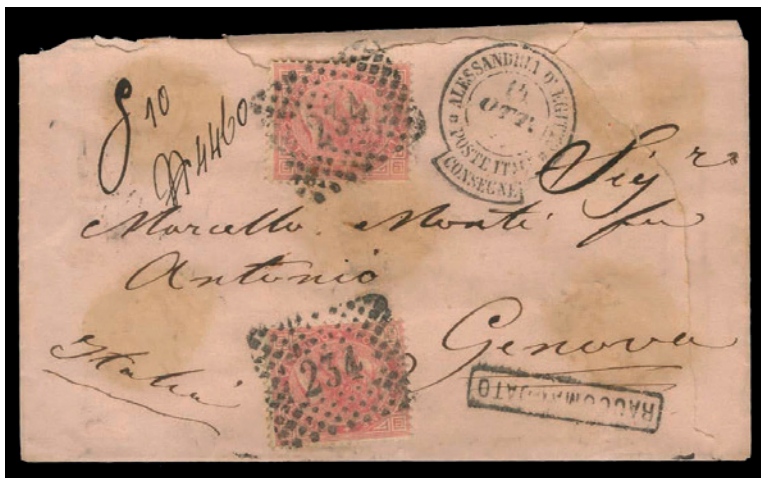 8 10
N 4460
234
ALESSANDRIA D' EGITTO
OTT.
POSTE ITALI
CONSEGNE
Sigr
Marcello Monti fu
Antonio
Genova
Italia
234
RACCOMANDATO